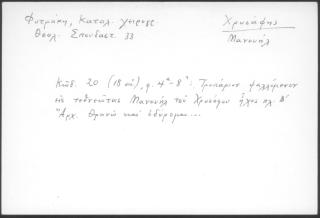 Φυτράκη, Κατάλ. χειρογρ.
Θεολ. Σπουδαστ. 33
Χρυσάφης
Μανουήλ
Κῶδ. 20 (18 αἰ), φ. 4α-8α: Τροπάριον ψαλλόμενον
εἰς Μανουὴλ τοῦ Χρυσάφου ἦχος πλ. β'
Ἀρχ. Θρηνῶ καὶ ὀδύρομαι...